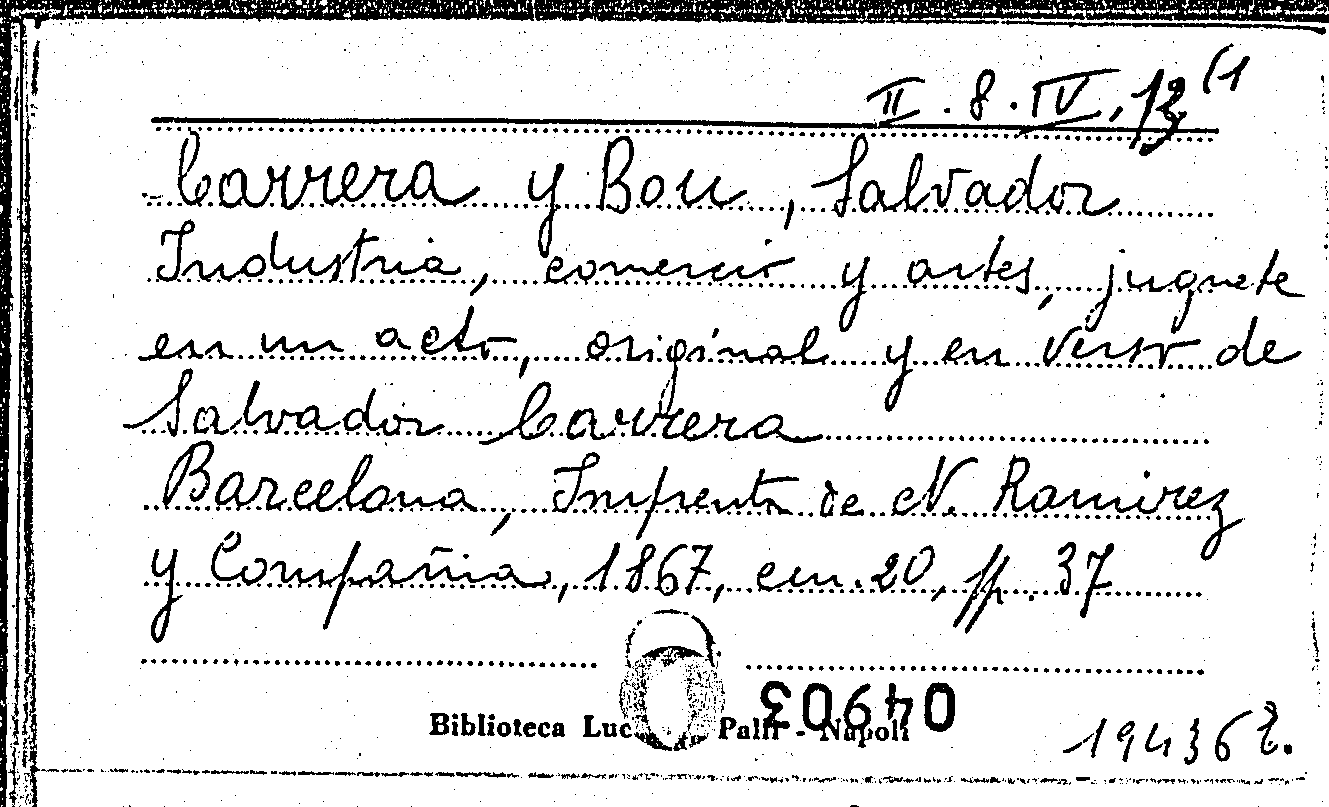 II. 8. IV. 13 (1
Carrera y Bou, Salvador
Industria, comercio y artes, juguete
en un acto, original y en verso de
Salvador Carrera
Barcelona, Imprenta de N. Ramirez
y Compañia, 1867, cm. 20, pp. 37
04903
Biblioteca Palli - Napoli